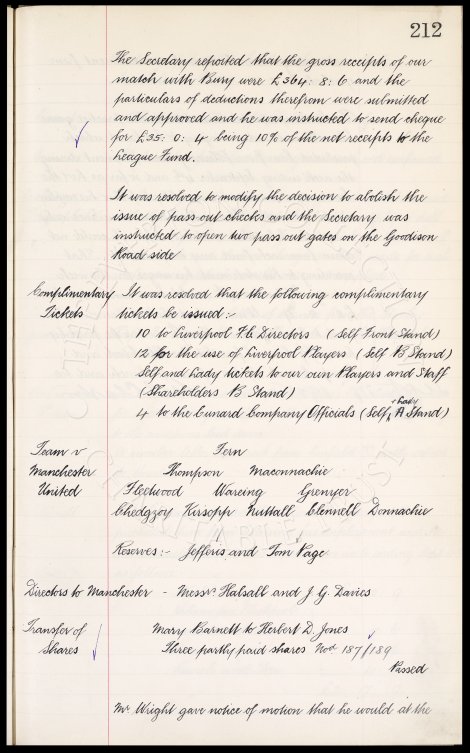 212
The Secretary reported that the gross receipts of our
match with Bury were £364: 8: 6 and the
particulars of deductions therefrom were submitted
and approved and he was instructed to send cheque
for £35: 0: 4 being 10% of the net receipts to the
League Fund.
It was resolved to modify the decision to abolish the
issue of pass out checks and the Secretary was
instructed to open two pass out gates on the Goodison
Road side
Complimentary Tickets
It was resolved that the following complimentary
tickets be issued:-
10 to Liverpool F.C. Directors (Self Front Stand)
12 for the use of Liverpool Players (Self B Stand)
Self and Lady tickets to our own Players and Staff
(Shareholders B Stand)
4 to the Cunard Company Officials (Self + Lady A Stand)
Team v
Manchester
United
Fern
Thompson Maconnachie
Fleetwood Wareing Grenyer
Chedgzoy Kirsopp Nuttall Clennell Donnachie
Reserves:- Jefferis and Tom Page
Directors to Manchester - Messrs. Halsall and J. G. Davies
Transfer of
Shares
Mary Barnett to Herbert D. Jones
Three partly paid shares Nos 187/189
Passed
Mr Wright gave notice of motion that he would at the